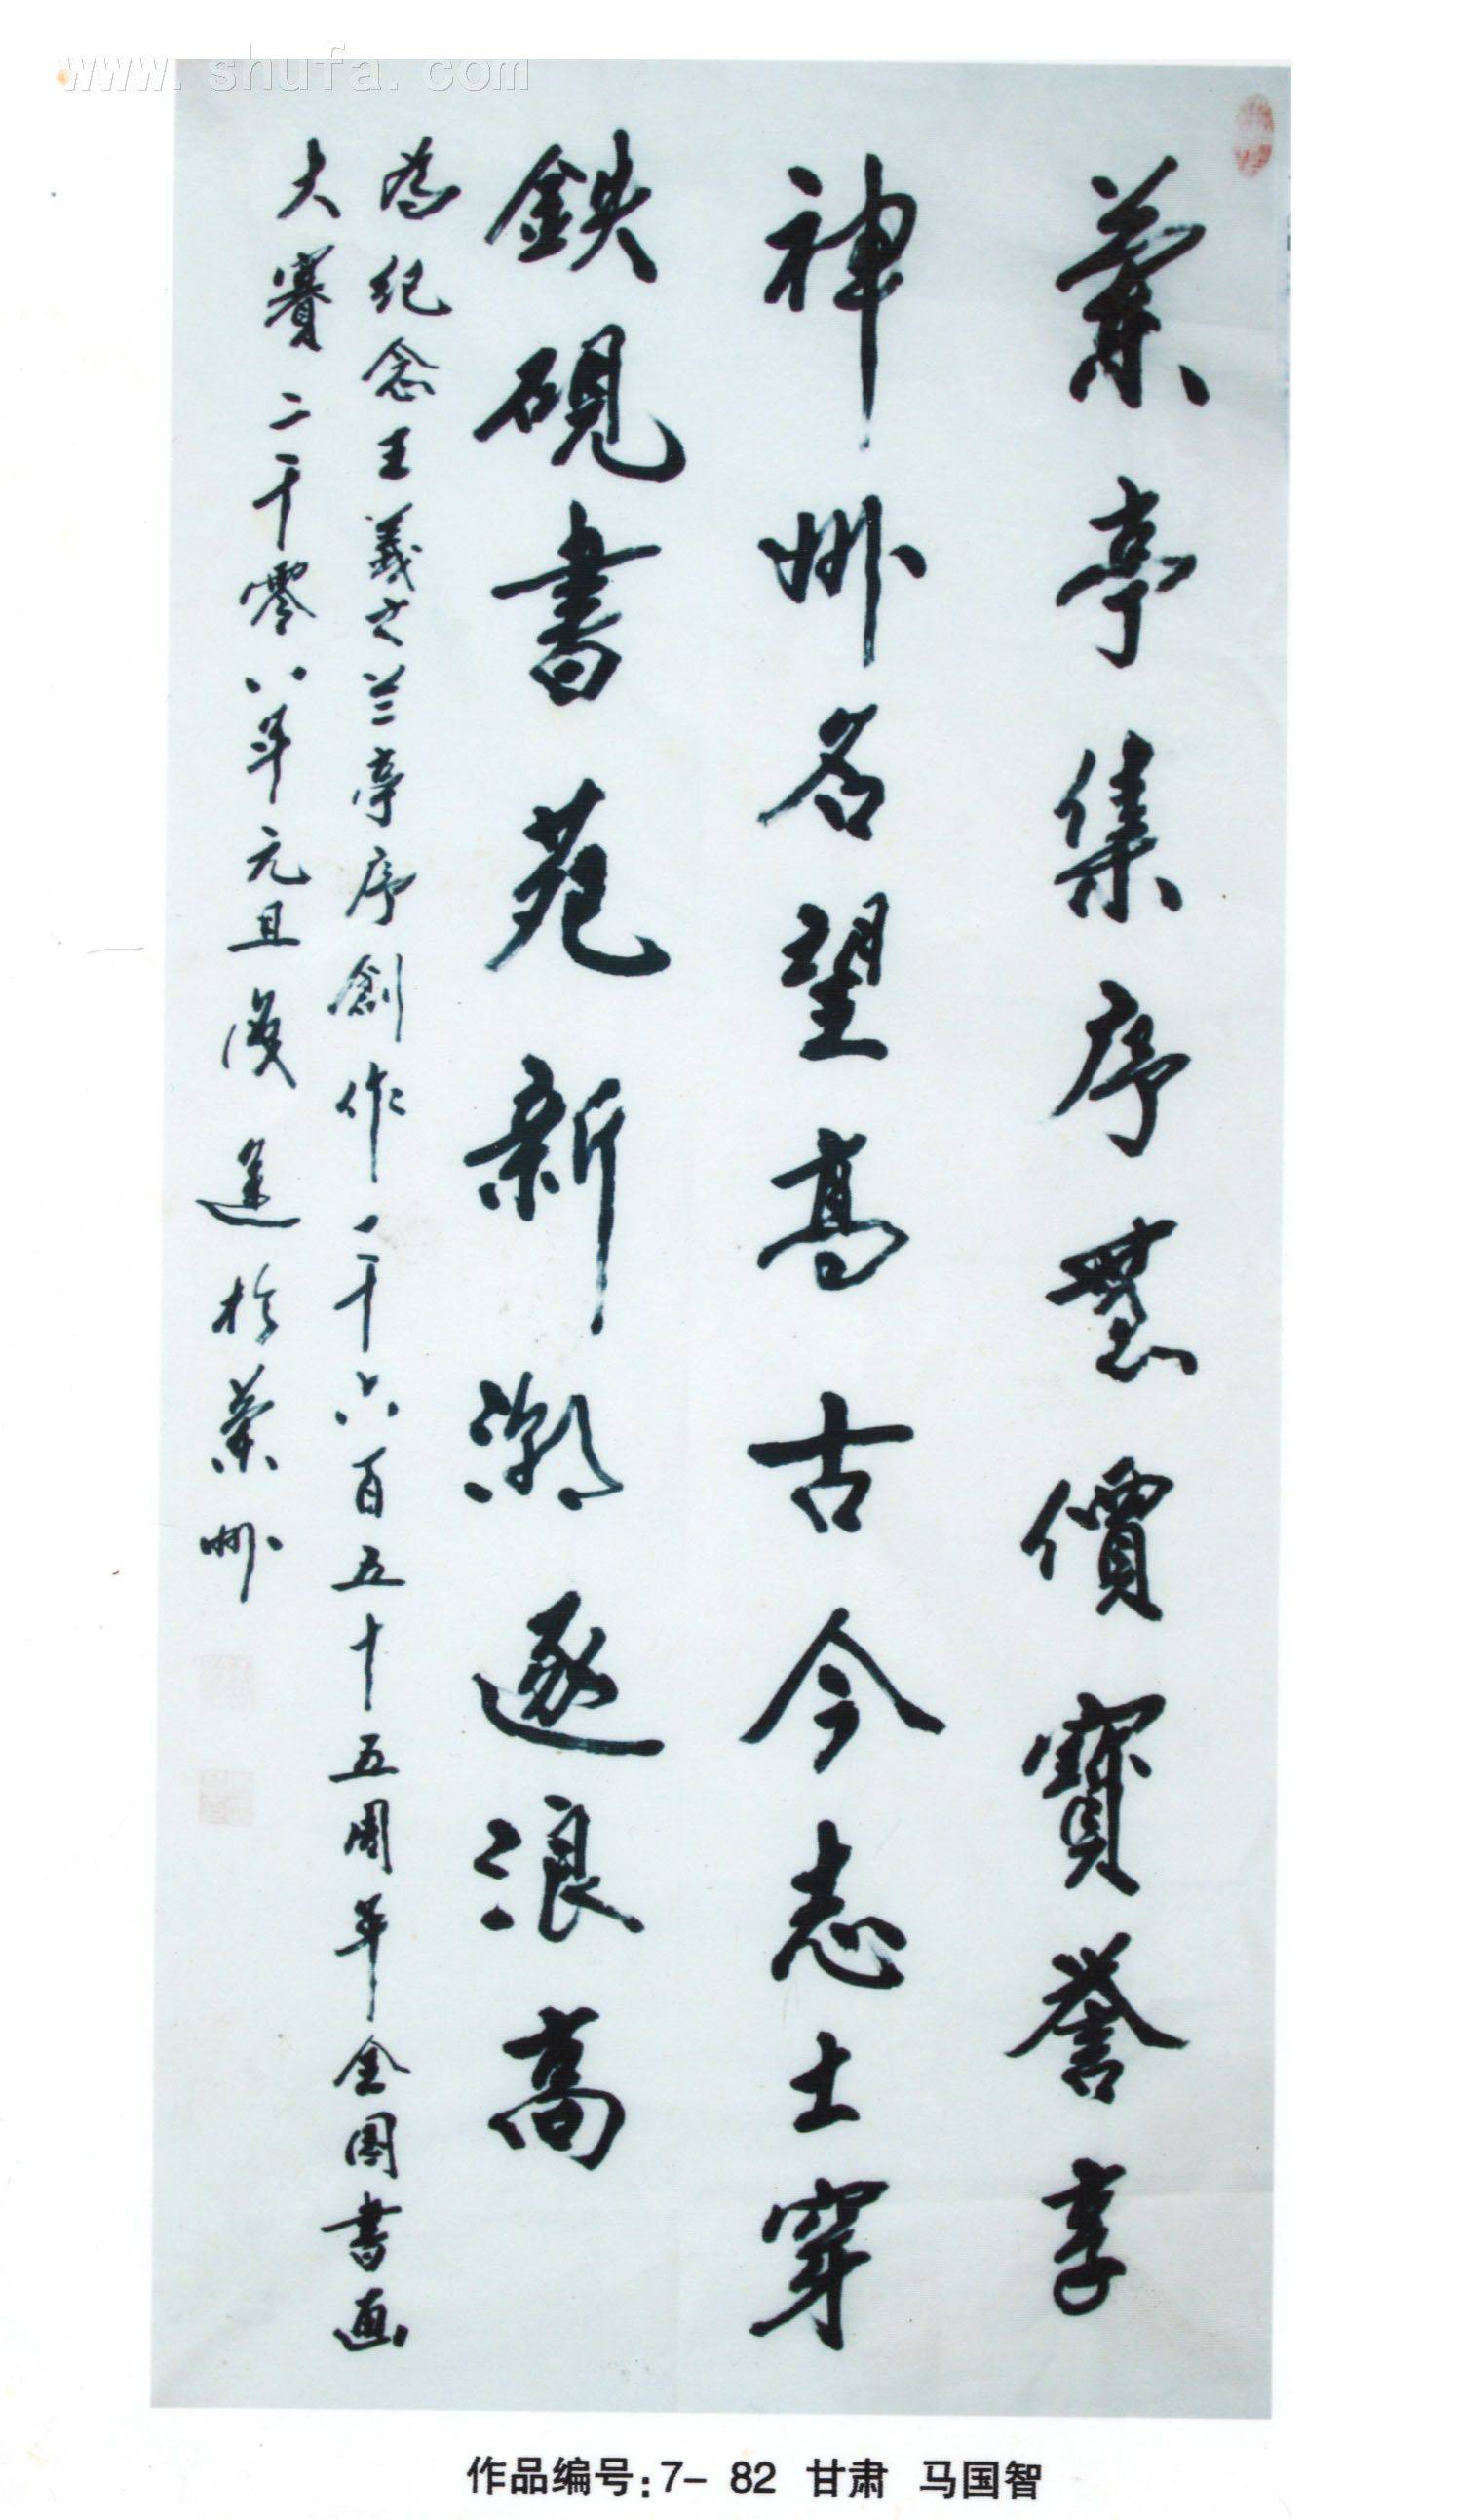 www.shufa.com
蘭亭集序無價寶譽享
神州名望高古今志士穿
鉄硯書苑新潮逐浪高
為紀念王羲之兰亭序創作一千六百五十五周年全國書画
大賽二千零八年元旦於蘭州
作品编号:7- 82 甘肃 马国智